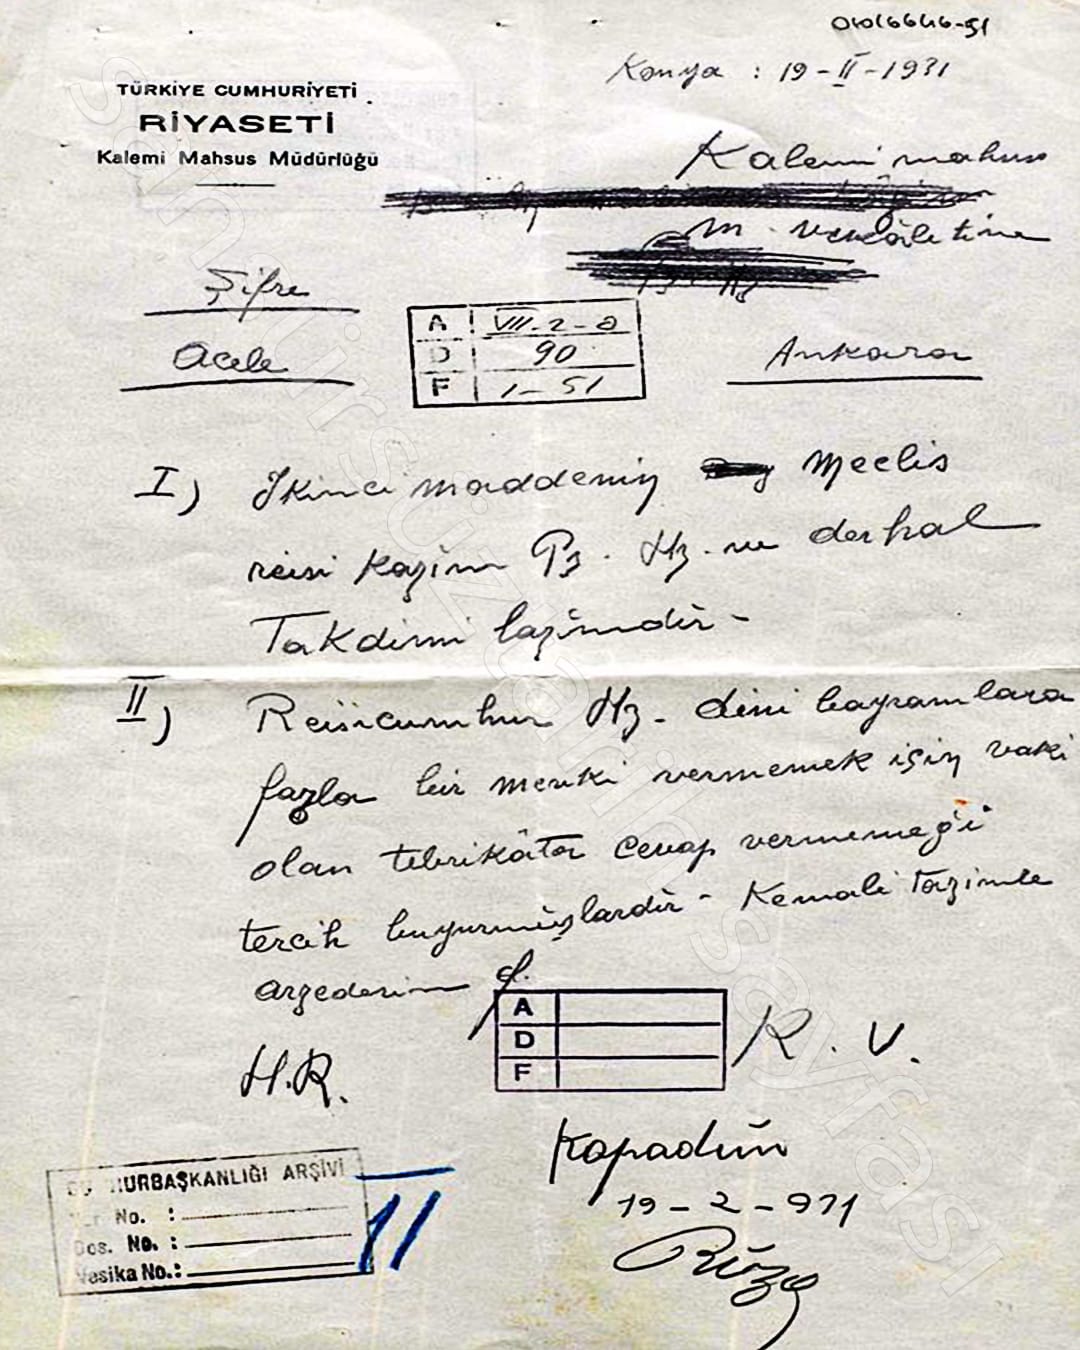 0606646-51
Konya : 19-II-1931
TÜRKİYE CUMHURİYETİ
RİYASETİ
Kalemi Mahsus Müdürlüğü
Kalemi mahsus
m. vekâletine
Şifre
Acele
Ankara
A VIII-2-a
D 90
F 1-51
I) İkinci maddenin Meclis
reisi Kazim Pş. Hz. ne derhal
Takdimi lazimdir-
II) Reisicumhur Hz. dini bayramlara
fazla bir mevki vermemek için vaki
olan tebrikâta cevap vermemeği
tercih buyurmuşlardır- Kemali tazimle
arzederim
A
D
F
K. V.
H.R.
Kapadım
19-2-931
CUMHURBAŞKANLIĞI ARŞİVİ
No. :
Dos. No. :
Vesika No.:
11
sanalirsüz tarih sayfası